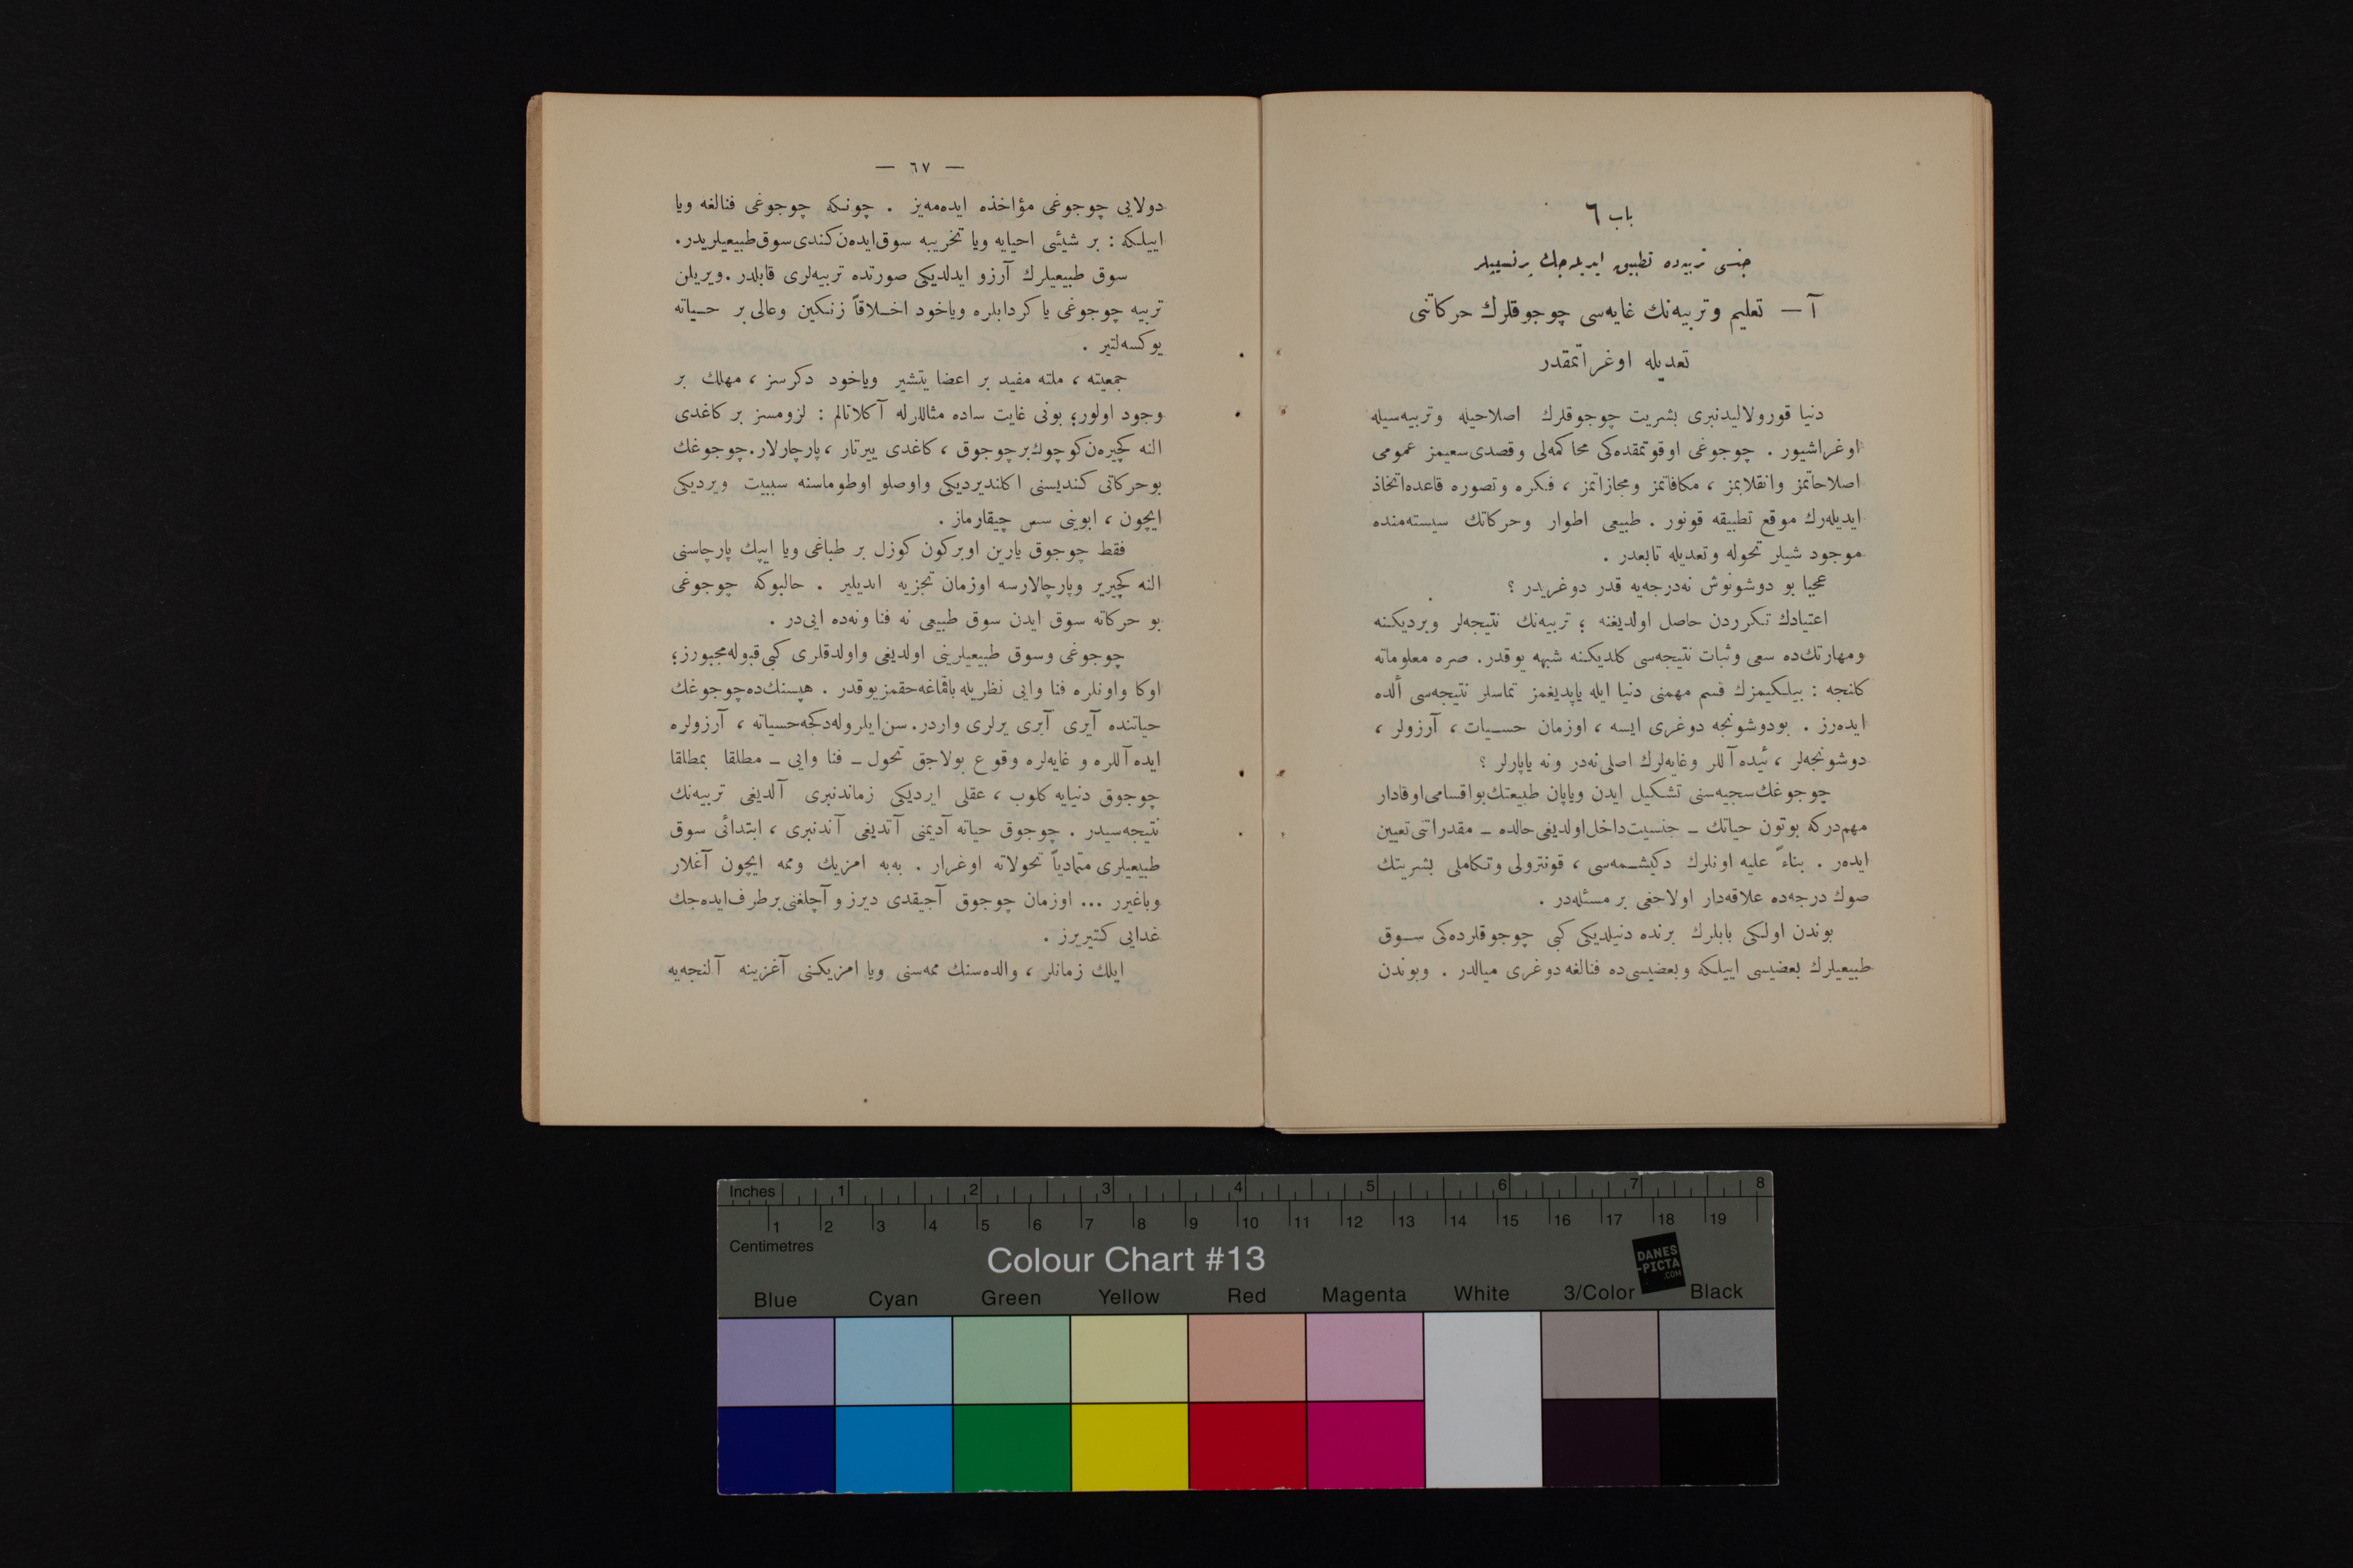 باب ٦
جنسى تربيه‌ده تطبيق ايديله‌جك پرنسيپلر
آ — تعليم وتربيه‌نك غايه‌سى چوجوقلرك حركاتنى
تعديله اوغراتمقدر
دنيا قورولاليدنبرى بشريت چوجوقلرك اصلاحيله وتربيه‌سيله
اوغراشيور . چوجوغى اوقوتمقده‌كى محاكمه‌لى وقصدى سعيمز عمومى
اصلاحاتمز وانقلابمز ، مكافاتمز ومجازاتمز ، فكره وتصوره قاعده اتخاذ
ايديله‌رك موقع تطبيقه قونور . طبيعى اطوار وحركاتك سيسته‌منده
موجود شيلر تحوله وتعديله تابعدر .
عجبا بو دوشونوش نه‌درجه‌يه قدر دوغريدر ؟
اعتيادك تكرردن حاصل اولديغنه ؛ تربيه‌نك نتيجه‌لر ويرديكنه
ومهارتك‌ده سعى وثبات نتيجه‌سى كلديكنه شبهه يوقدر . صره معلوماته
كلنجه : بيلكيمزك قسم مهمنى دنيا ايله ياپديغمز تماسلر نتيجه‌سى ألده
ايده‌رز . بودوشونجه دوغرى ايسه ، اوزمان حسيات ، آرزولر ،
دوشونجه‌لر ، ئيده آللر وغايه‌لرك اصلى نه‌در ونه ياپارلر ؟
چوجوغك سجيه‌سنى تشكيل ايدن وياپان طبيعتك بواقسامى اوقادار
مهم‌دركه بوتون حياتك – جنسيت داخل اولديغى حالده – مقدراتنى تعيين
ايده‌ر . بناءً عليه اونلرك دكيشمه‌سى ، قونترولى وتكاملى بشريتك
صوك درجه‌ده علاقه‌دار اولاجغى بر مسئله‌در .
بوندن اولكى بابلرك برنده دنيلديكى كبى چوجوقلرده‌كى سوق
طبيعيلرك بعضيسى اييلكه وبعضيسى‌ده فنالغه دوغرى ميالدر . وبوندن
— ٦٧ —
دولايى چوجوغى مؤاخذه ايده‌مه‌يز . چونكه چوجوغى فنالغه ويا
اييلكه : بر شيئى احيايه ويا تخريبه سوق ايده‌ن كندى سوق طبيعيلريدر .
سوق طبيعيلرك آرزو ايدلديكى صورتده تربيه‌لرى قابلدر . ويريلن
تربيه چوجوغى يا كردابلره وياخود اخلاقاً زنكين وعالى بر حسياته
يوكسه‌لتير .
جمعيته ، ملته مفيد بر اعضا يتشير وياخود دكرسز ، مهلك بر
وجود اولور؛ بونى غايت ساده مثاللرله آكلاتالم : لزومسز بر كاغدى
النه كچيره‌ن كوچوك بر چوجوق ، كاغدى ييرتار ، پارچارلار . چوجوغك
بوحركاتى كنديسنى اكلنديرديكى واوصلو اوطوماسنه سببيت ويرديكى
ايچون ، ابوينى سس چيقارماز .
فقط چوجوق يارين اوبركون كوزل بر طباغى ويا ايپك پارچاسنى
النه كچيرير وپارچالارسه اوزمان تجزيه ايديلير . حالبوكه چوجوغى
بو حركاته سوق ايدن سوق طبيعى نه فنا ونه‌ده ايى‌در .
چوجوغى وسوق طبيعيلرينى اولديغى واولدقلرى كبى قبوله مجبورز؛
اوكا واونلره فنا وايى نظريله باقماغه حقمز يوقدر . هپسنك‌ده چوجوغك
حياتنده آيرى آيرى يرلرى واردر . سن ايلروله‌دكجه حسياته ، آرزولره
ايده آللره و غايه‌لره وقوع بولاجق تحول – فنا وايى – مطلقا بمطلقا
چوجوق دنيايه كلوب ، عقلى ايرديكى زماندنبرى آلديغى تربيه‌نك
نتيجه‌سيدر . چوجوق حياته آديمنى آتديغى آندنبرى ، ابتدائى سوق
طبيعيلرى متمادياً تحولاته اوغرار . به‌به امزيك ومه ايچون آغلار
وباغيرر ... اوزمان چوجوق آجيقدى ديرز و آچلغنى برطرف ايده‌جك
غدايى كتيريرز .
ايلك زمانلر ، والده‌سنك ممه‌سنى ويا امزيكنى آغزينه آلنجه‌يه
Inches 1 2 3 4 5 6 7 8
1 2 3 4 5 6 7 8 9 10 11 12 13 14 15 16 17 18 19
Centimetres
Colour Chart #13
DANES
-PICTA
.COM
Blue Cyan Green Yellow Red Magenta White 3/Color Black